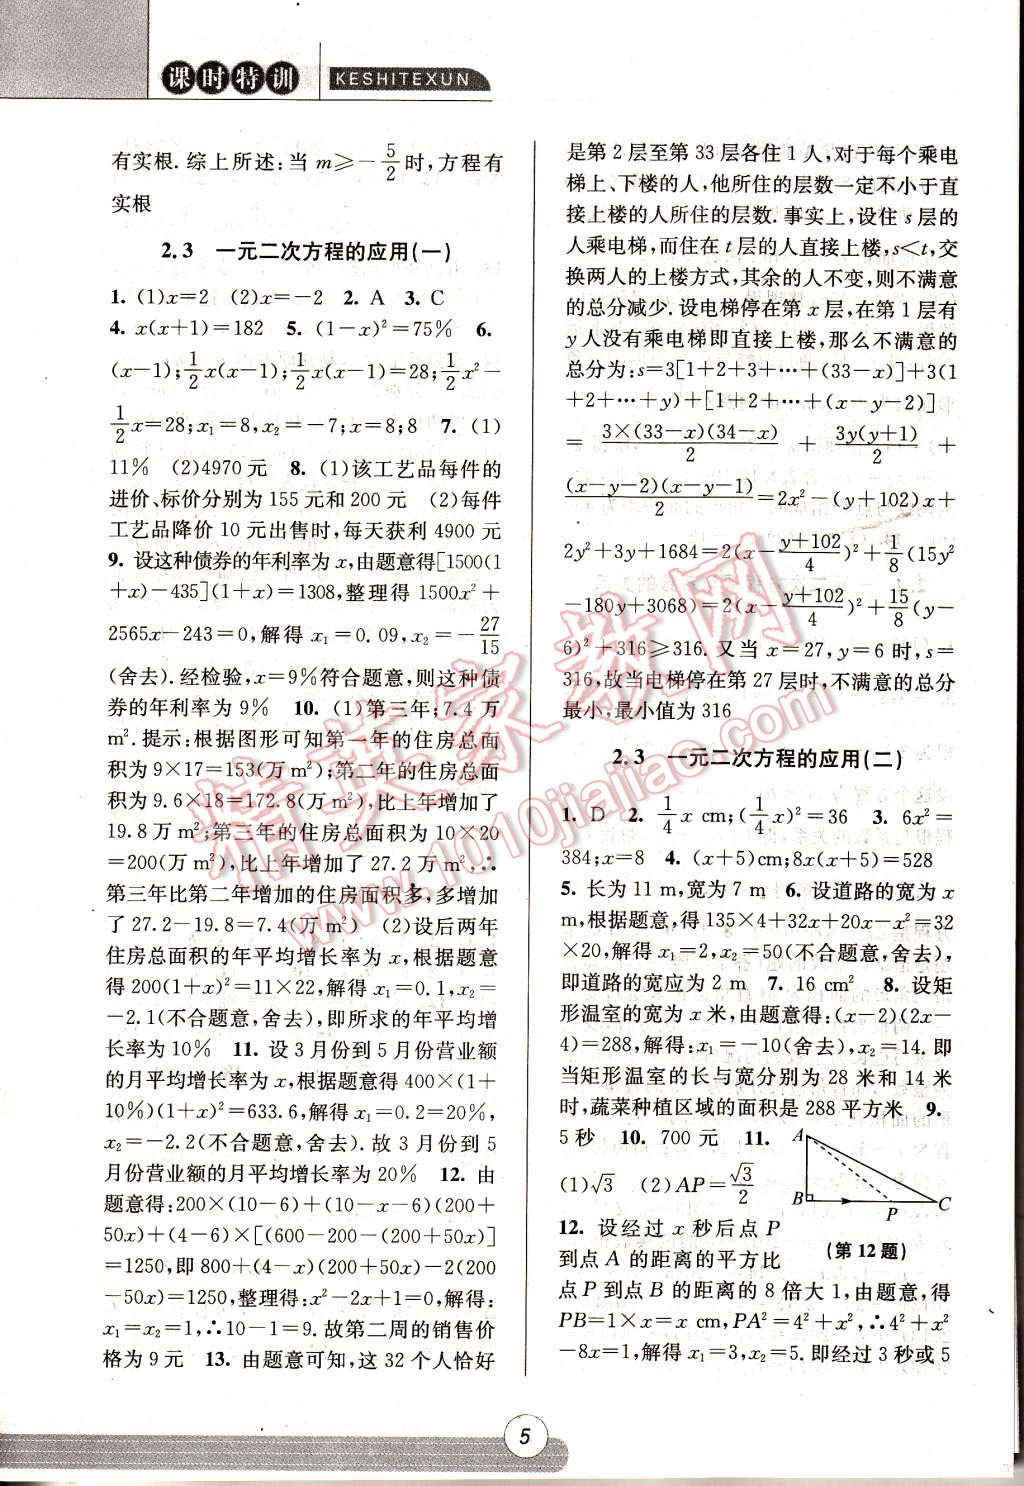 课时特训
KESHITEXUN
有实根.综上所述:当 m≥-5/2时,方程有
实根
2.3 一元二次方程的应用(一)
1. (1)x=2 (2)x=-2 2. A 3. C
4. x(x+1)=182 5. (1-x)²=75% 6.
(x-1);1/2x(x-1);1/2x(x-1)=28;1/2x²-
1/2x=28;x₁=8,x₂=-7;x=8;8 7. (1)
11% (2)4970 元 8. (1)该工艺品每件的
进价、标价分别为 155 元和 200 元 (2)每件
工艺品降价 10 元出售时,每天获利 4900 元
9. 设这种债券的年利率为 x,由题意得[1500(1
+x)-435](1+x)=1308,整理得 1500x²+
2565x-243=0,解得 x₁=0.09,x₂=-27/15
(舍去).经检验,x=9%符合题意,则这种债
券的年利率为 9% 10. (1)第三年;7.4 万
m².提示:根据图形可知第一年的住房总面
积为 9×17=153(万 m²);第二年的住房总面
积为 9.6×18=172.8(万 m²),比上年增加了
19.8 万 m²;第三年的住房总面积为 10×20
=200(万 m²),比上年增加了 27.2 万 m²,∴
第三年比第二年增加的住房面积多,多增加
了 27.2-19.8=7.4(万 m²) (2)设后两年
住房总面积的年平均增长率为 x,根据题意
得 200(1+x)²=11×22,解得 x₁=0.1,x₂=
-2.1(不合题意,舍去),即所求的年平均增
长率为 10% 11. 设 3 月份到 5 月份营业额
的月平均增长率为 x,根据题意得 400×(1+
10%)(1+x)²=633.6,解得 x₁=0.2=20%,
x₂=-2.2(不合题意,舍去).故 3 月份到 5
月份营业额的月平均增长率为 20% 12. 由
题意得:200×(10-6)+(10-x-6)(200+
50x)+(4-6)×[(600-200-(200+50x)]
=1250,即 800+(4-x)(200+50x)-2(200
-50x)=1250,整理得:x²-2x+1=0,解得:
x₁=x₂=1,∴10-1=9.故第二周的销售价
格为 9 元 13. 由题意可知,这 32 个人恰好
是第 2 层至第 33 层各住 1 人,对于每个乘电
梯上、下楼的人,他所住的层数一定不小于直
接上楼的人所住的层数.事实上,设住 s 层的
人乘电梯,而住在 t 层的人直接上楼,s<t,交
换两人的上楼方式,其余的人不变,则不满意
的总分减少.设电梯停在第 x 层,在第 1 层有
y 人没有乘电梯即直接上楼,那么不满意的
总分为:s=3[1+2+3+…+(33-x)]+3(1
+2+…+y)+[1+2+…+(x-y-2)]
= 3×(33-x)(34-x)/2 + 3y(y+1)/2 +
(x-y-2)(x-y-1)/2=2x²-(y+102)x+
2y²+3y+1684=2(x-(y+102)/4)²+1/8(15y²
-180y+3068)=2(x-(y+102)/4)²+15/8(y-
6)²+316≥316.又当 x=27,y=6 时,s=
316,故当电梯停在第 27 层时,不满意的总分
最小,最小值为 316
2.3 一元二次方程的应用(二)
1. D 2. 1/4x cm;(1/4x)²=36 3. 6x²=
384;x=8 4. (x+5)cm;8x(x+5)=528
5. 长为 11 m,宽为 7 m 6. 设道路的宽为 x
m,根据题意,得 135×4+32x+20x-x²=32
×20,解得 x₁=2,x₂=50(不合题意,舍去),
即道路的宽应为 2 m 7. 16 cm² 8. 设矩
形温室的宽为 x 米,由题意得:(x-2)(2x-
4)=288,解得:x₁=-10(舍去),x₂=14.即
当矩形温室的长与宽分别为 28 米和 14 米
时,蔬菜种植区域的面积是 288 平方米 9.
5 秒 10. 700 元 11.
(1)√3 (2)AP=√3/2
A
B
P
C
(第 12 题)
12. 设经过 x 秒后点 P
到点 A 的距离的平方比
点 P 到点 B 的距离的 8 倍大 1,由题意,得
PB=1×x=x cm,PA²=4²+x²,∴4²+x²
-8x=1,解得 x₁=3,x₂=5.即经过 3 秒或 5
精英家教网
www.1010jiajiao.com
5